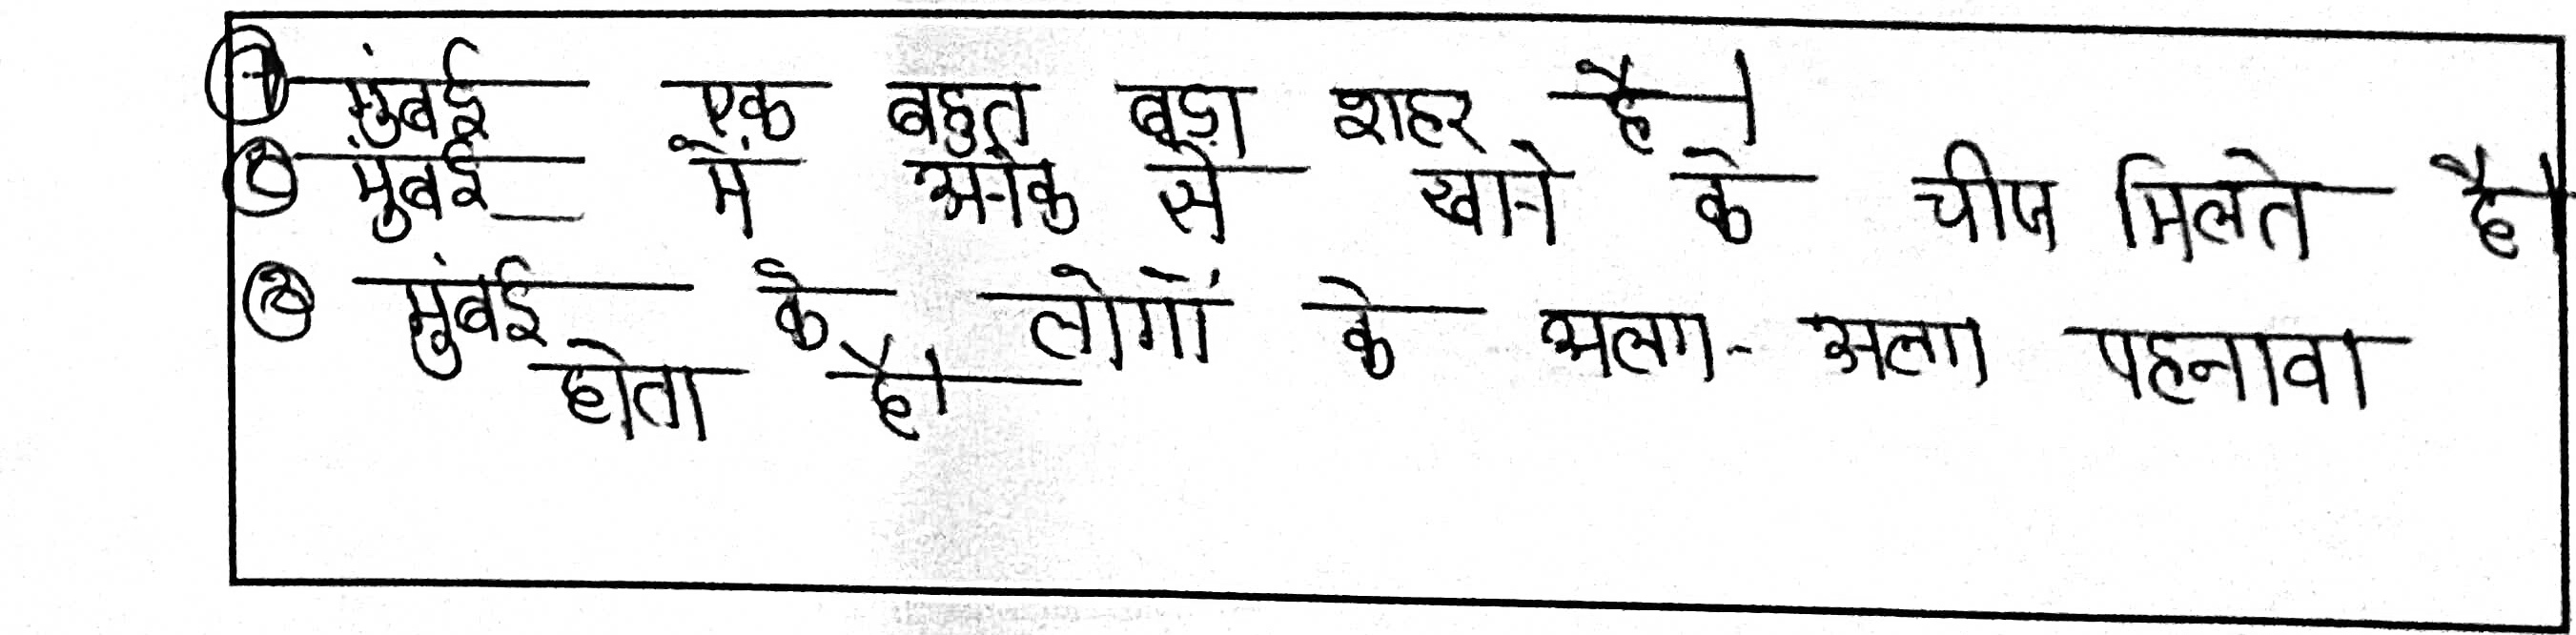 ① मुंबई एक बहुत बड़ा शहर है।
② मुंबई में अनेक से खाने के चीज मिलते है।
③ मुंबई के लोगों के अलग-अलग पहनावा
होता है।